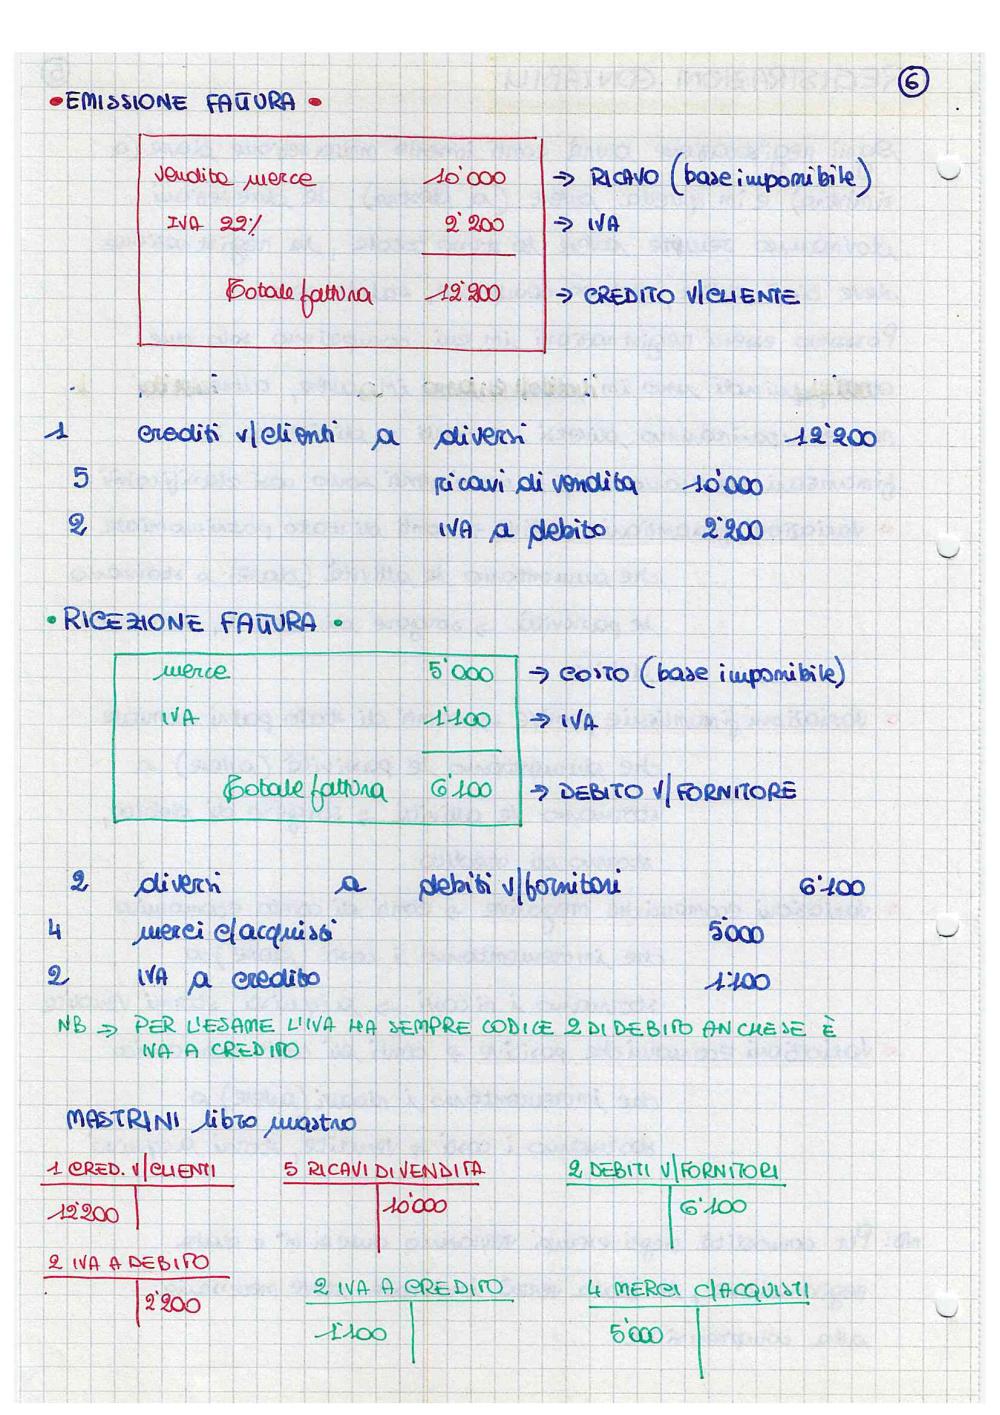 6
• EMISSIONE FATTURA •
vendita merce 10'000 → RICAVO (base imponibile)
IVA 22% 2'200 → IVA
Totale fattura 12'200 → CREDITO V/CLIENTE
1 crediti v/clienti a diversi 12'200
5 ricavi di vendita 10'000
2 IVA a debito 2'200
• RICEZIONE FATTURA •
merce 5'000 → COSTO (base imponibile)
IVA 1'100 → IVA
Totale fattura 6'100 → DEBITO V/FORNITORE
2 diversi a debiti v/fornitori 6'100
4 merci c/acquisti 5'000
2 IVA a credito 1'100
NB → PER L'ESAME L'IVA HA SEMPRE CODICE 2 DI DEBITO ANCHE SE È
IVA A CREDITO
MASTRINI libro mastro
1 CRED. V/CLIENTI 5 RICAVI DI VENDITA 2 DEBITI V/FORNITORI
12'200 10'000 6'100
2 IVA A DEBITO
2'200
2 IVA A CREDITO 4 MERCI C/ACQUISTI
1'100 5'000